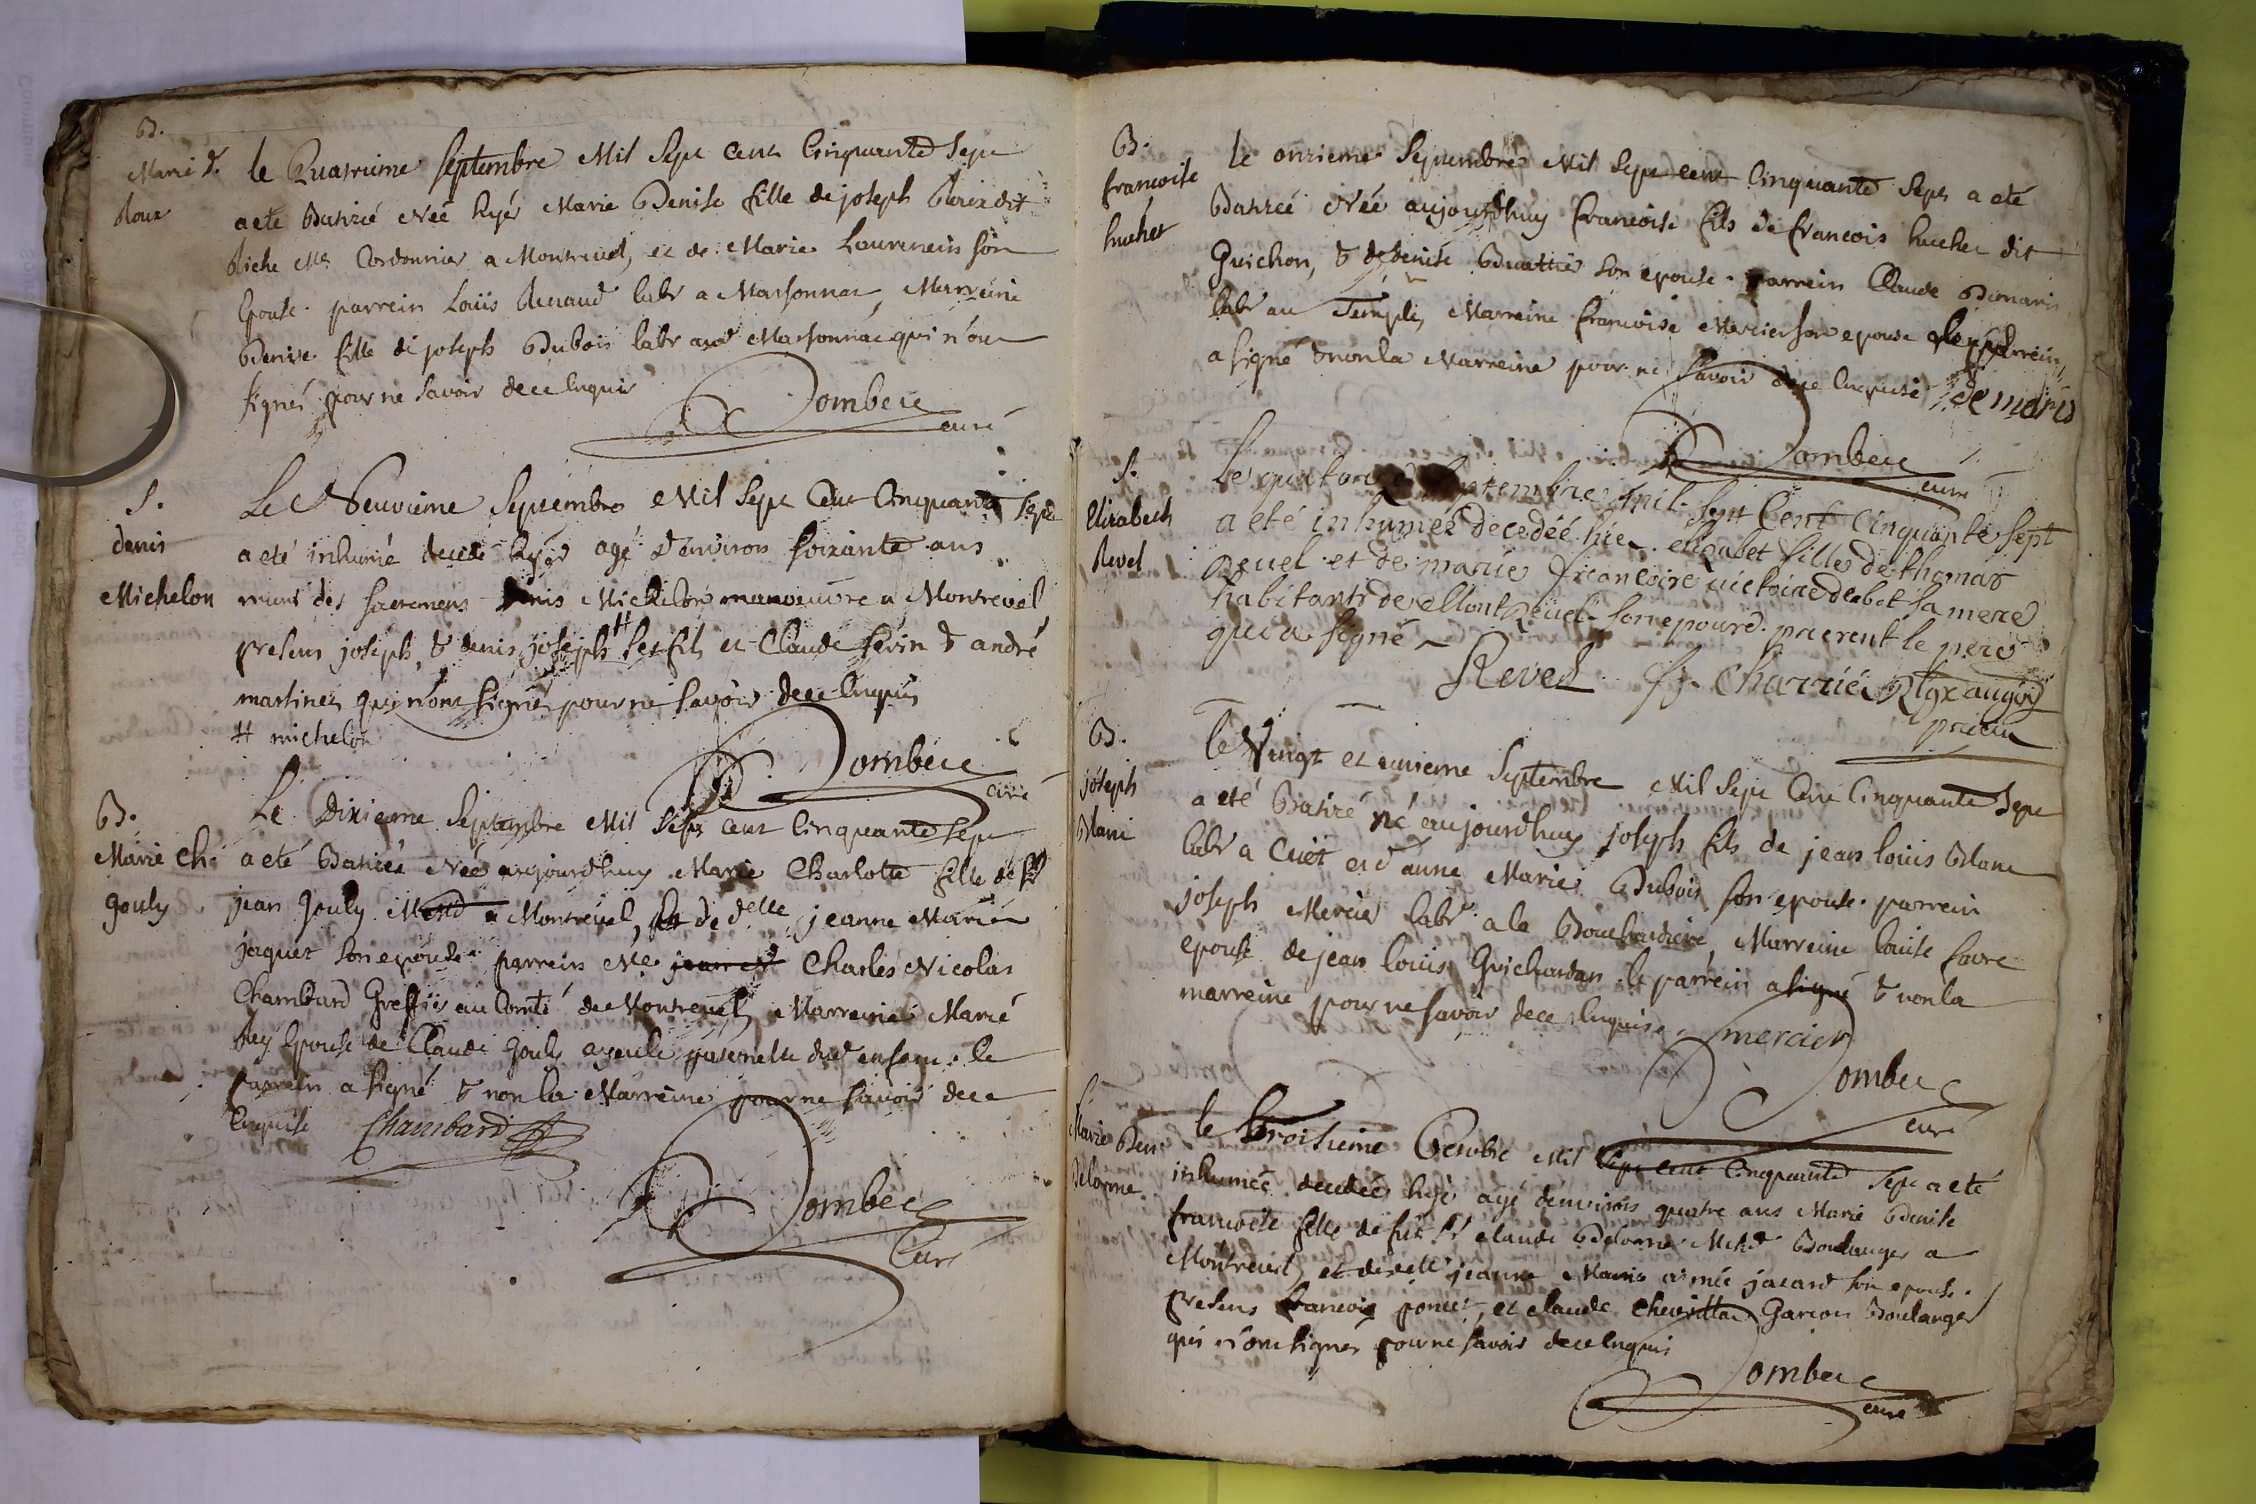 B.
Marie d.
Roux
le Quatrieme Septembre Mil Sept Cent Cinquante Sept
a eté Batizée Née hyer Marie Denise fille de joseph dit
Riche Me Cordonnier a Montrevel, et de Marie Laurencin son
Epouse. parrein Loüis Renaud labr a Marsonnas, Marreine
Denise fille de joseph Dubois labr aud Marsonnas qui n'ont
Signés pour ne Savoir de ce Enquis
Dombeÿ
curé
S.
denis
Michelon
Le Neuvieme Septembre Mil Sept Cent Cinquante Sept
a eté inhumé decedé hyer agé d'environ soixante ans
muni des sacremens denis Michelon manoeuvre a Montrevel
presens joseph, & denis joseph # ses fils et Claude fevin & andré
martinet qui n'ont signés pour ne savoir de ce Enquis
# michelon
Dombeÿ
curé
B.
Marie Ch.
Gouly
Le Dixieme Septembre Mil Sept Cent Cinquante Sept
a eté Batizée Née aujourdhuy Marie Charlotte fille de Sr
jean Gouly Marchd a Montrevel, et de delle jeanne Marie
jaquet Son epouse. parrein Me jean Charles Nicolas
Chambard Greffier au Comté de Montrevel, Marreine Marie
Rey Epouse de Claude Gouly ayeule paternelle dud enfant. le
Parrein a signé & non la Marreine pour ne savoir de ce
Enquise Chambard
Dombeÿ
Curé
B.
francoise
huchet
Le onzieme Septembre Mil Sept cent Cinquante Sept a eté
Batizée Née aujourdhuy francoise fils de francois huchet dit
Guichon, & de denise son epouse. parrein Claude Demaris
labr au Temple, Marreine francoise Mercier son epouse le parrein
a signé & non la Marreine pour ne savoir de ce Enquise demaris
Dombeÿ
curé
S.
Elizabeth
Revel
Le quatorze Septembre mil Sept Cent Cinquante Sept
a eté inhumée decedée hier elizabet fille de thomas
Revel et de marie francoise victoire debot sa mere
habitants de Montrevel son epouse. presents le pere
qui a signé
Revel fr Charrié augus
prieur
B.
joseph
Blanc
Le Vingt et unieme Septembre Mil Sept Cent Cinquante Sept
a eté Batizé né aujourdhuy joseph fils de jean loüis Blanc
labr a Cuet et d'anne Marie Dubois son epouse. parrein
joseph Mercier labr a la Marreine loüise favre
epouse de jean loüis Guichardan. le parrein a signé & non la
marreine pour ne savoir de ce Enquise. mercier
Dombeÿ
curé
Marie Den.
Delorme
le Troisieme Octobre Mil Sept cent Cinquante Sept a eté
inhumée decedée hyer agé denvirons quatre ans Marie Denise
francoise fille de fut Sr Claude Delorme Mtre Boulanger a
Montrevel, et de delle jeanne Marie aimée jacard son epouse.
presens francois poncet, et Claude Chevrillard Garcon Boulanger
qui n'ont signés pour ne savoir de ce Enquis
Dombeÿ
curé